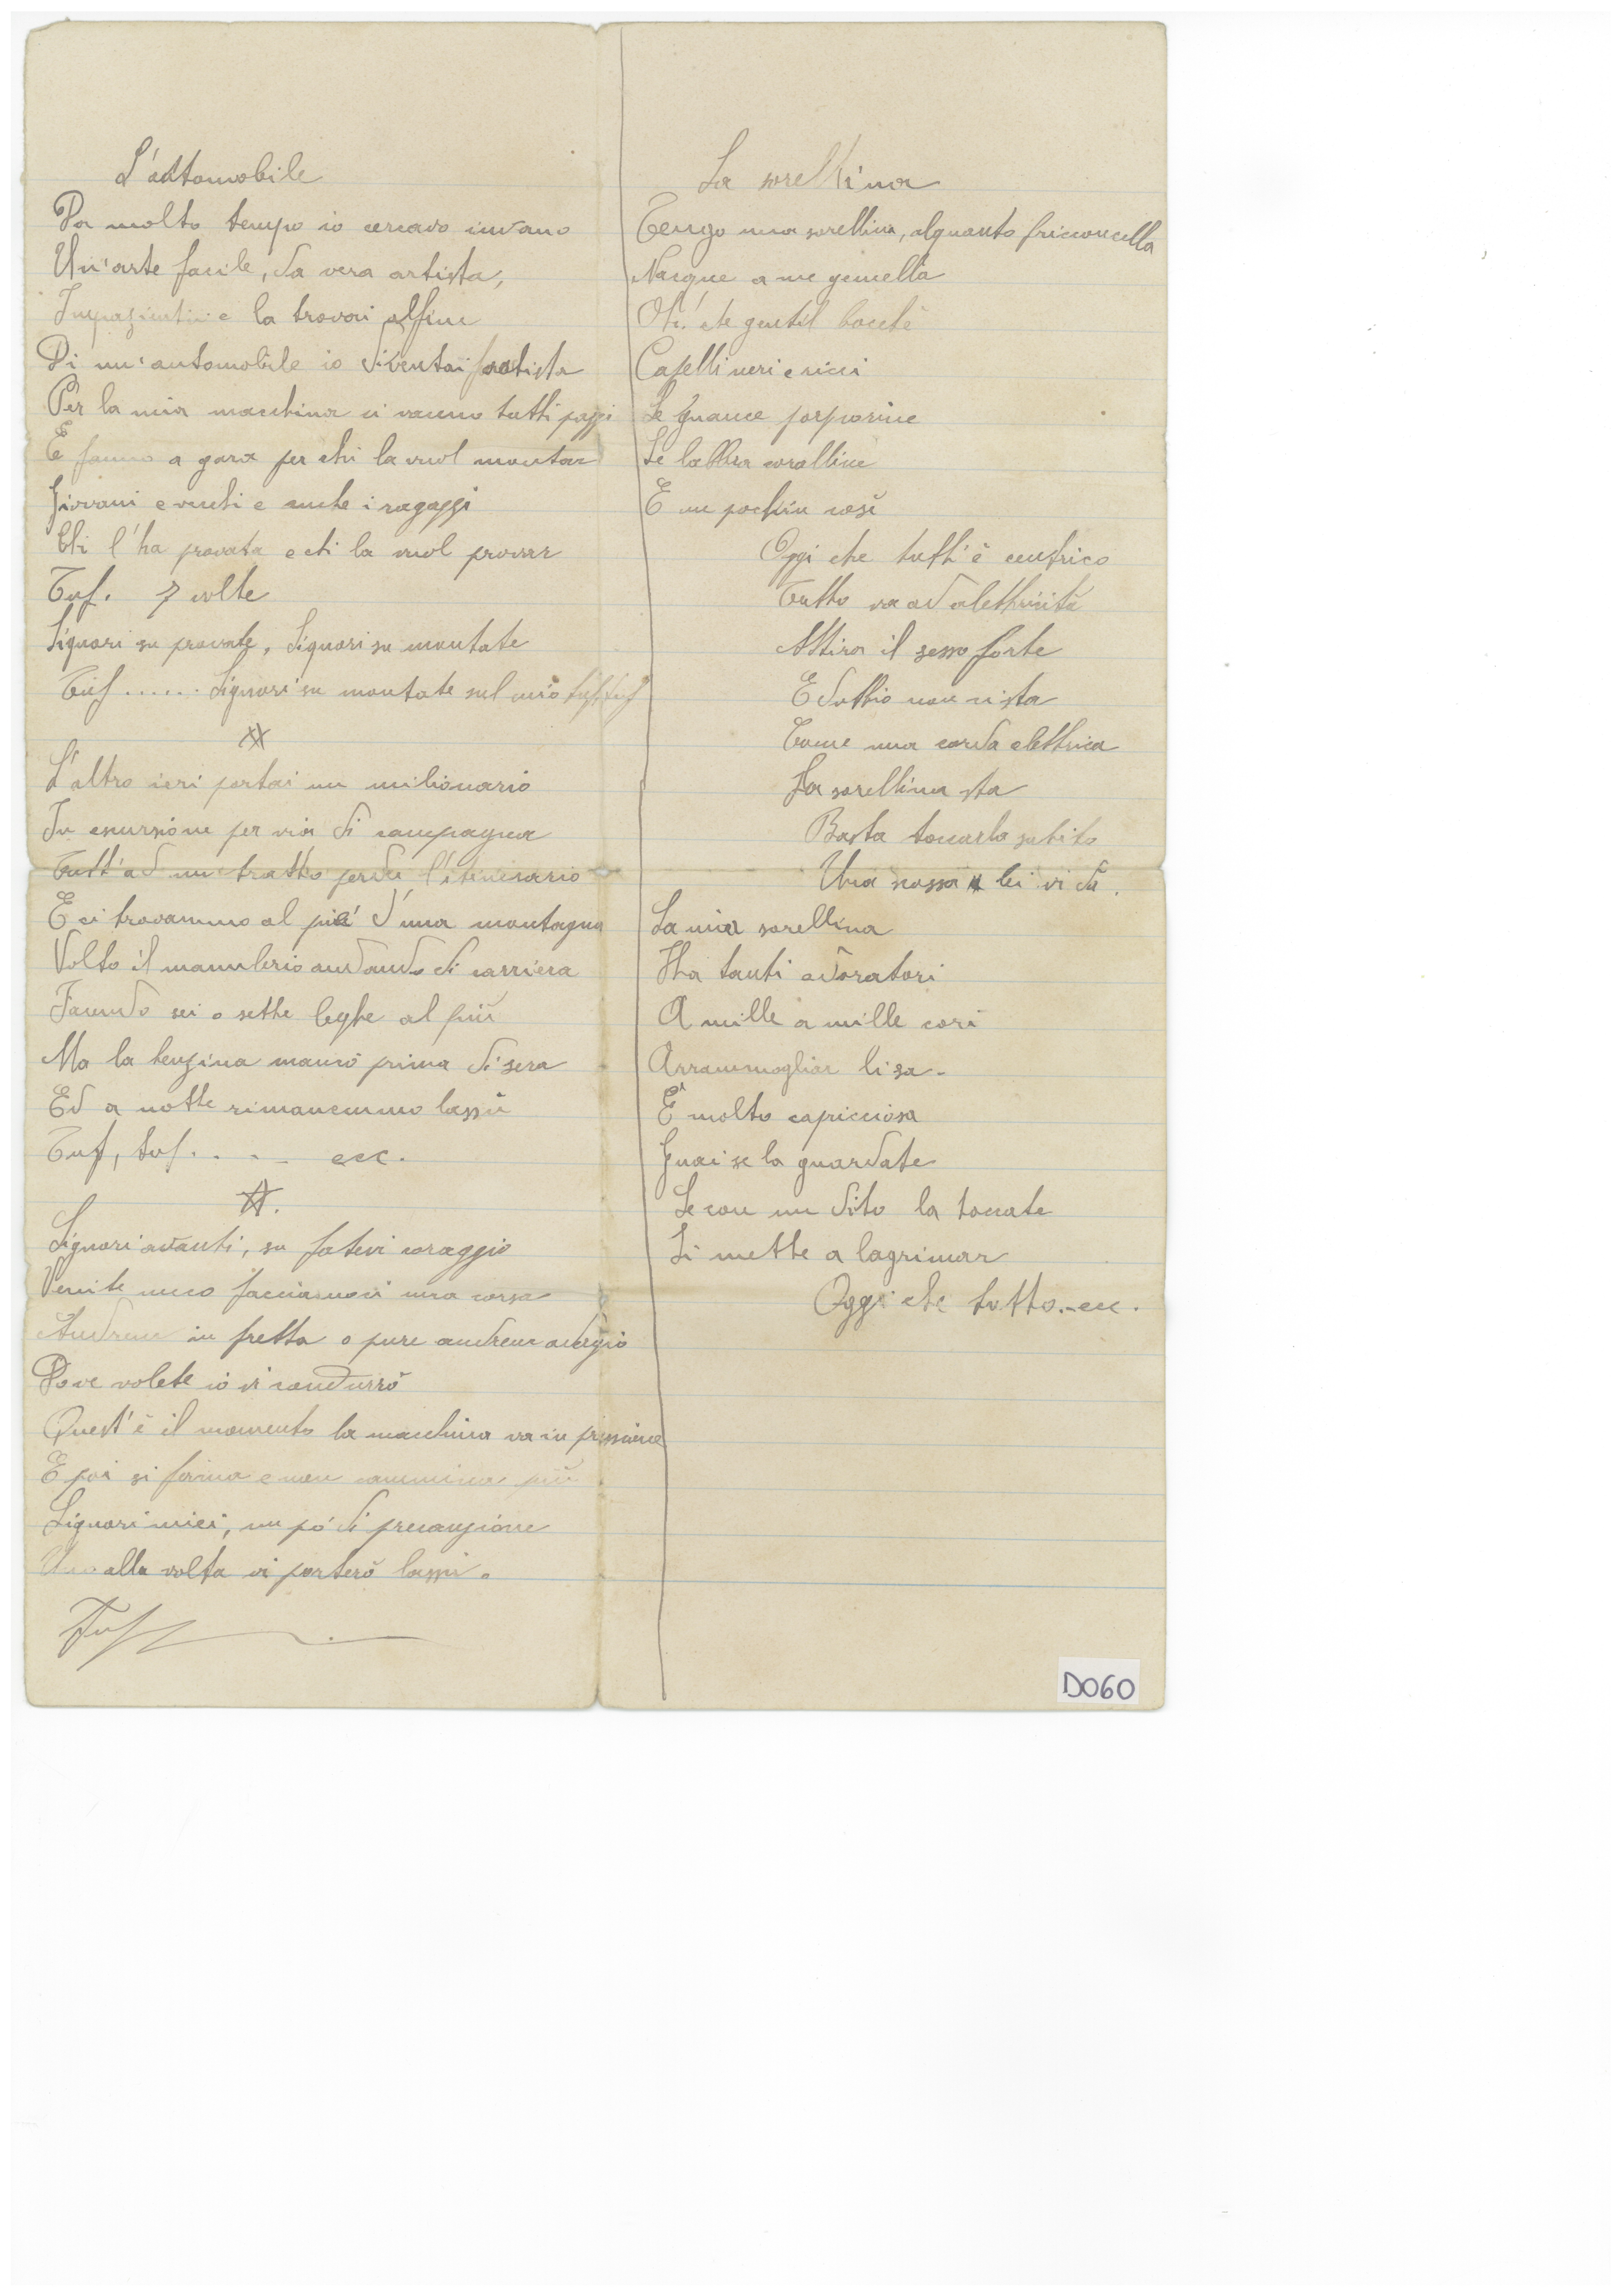 L'automobile
Da molto tempo io cercavo invano
Un'arte facile, da vera artista,
e la trovai alfine
Di un'automobile io diventai
Per la mia macchina ci vanno tutti pazzi
E fanno a gara per chi la vuol montar
Giovani e vecchi e anche i ragazzi
Chi l'ha provata e chi la vuol provar
Tuf. 7 volte
Signori su provate, Signori su montate
Tuf ...... Signori su montate sul mio tuf tuf
L'altro ieri portai un milionario
In escursione per via di campagna
Tutt'ad un tratto perdei l'itinerario
E ci trovammo al piè d'una montagna
Volto il manubrio andando di carriera
Facendo sei o sette leghe al più
Ma la benzina mancò prima di sera
Ed a notte rimanemmo lassù
Tuf, tuf.... ecc.
Signori avanti, su fatevi coraggio
Venite meco facciamoci una corsa
Andrem in fretta o pure andrem adagio
Dove volete io vi condurrò
Quest'è il momento la macchina va in pressione
E poi si ferma e non cammina più
Signori miei, un pò di precauzione
Uno alla volta vi porterò lassù.
Tuf
La sorellina
Tengo una sorellina, alquanto bricconcella
Nacque a me gemella
Oh! che gentil
Capelli neri e ricci
Le guance porporine
Le labbra coralline
E un pochin così
Oggi che tutt'è
Tutto va ad elettricità
Attira il sesso forte
E
Come una corda elettrica
La sorellina sta
Basta toccarla subito
Una scossa lei vi dà.
La mia sorellina
Ha tanti adoratori
A mille a mille cori
li sa.
È molto capricciosa
Guai se la guardate
Se con un dito la toccate
Si mette a lagrimar
Oggi che tutto.-ecc.
D060